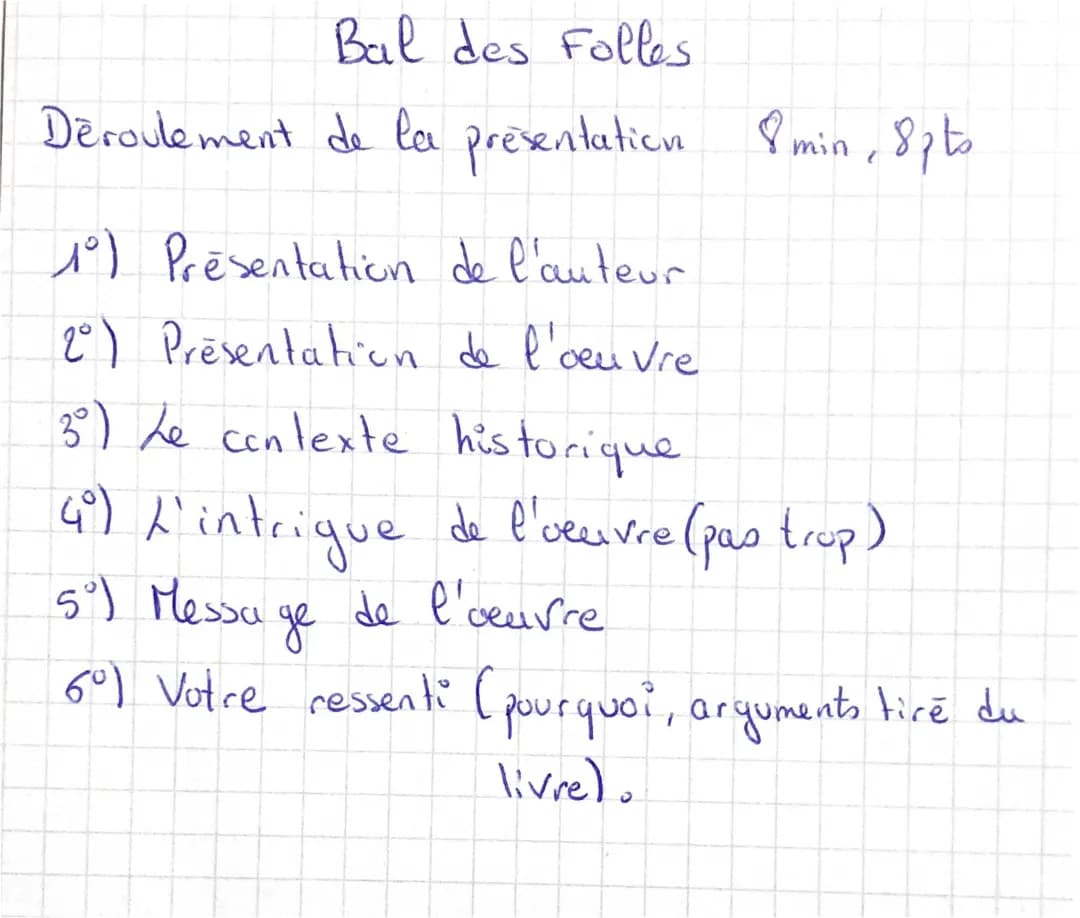 Bal des Folles
Déroulement de la présentation 8 min, 8 pts
1°) Présentation de l'auteur
2°) Présentation de l'oeuvre
3°) Le contexte historique
4°) L'intrigue de l'oeuvre (pas trop)
5°) Message de l'oeuvre
6°) Votre ressenti (pourquoi, arguments tiré du
livre).